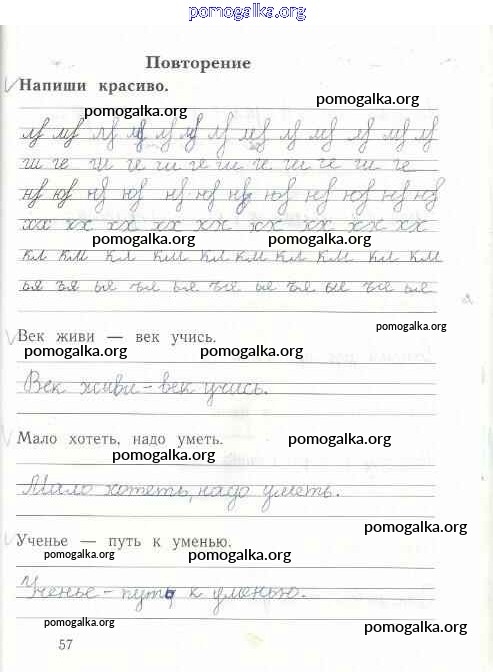 pomogalka.org
Повторение
Напиши красиво.
pomogalka.org
pomogalka.org
pomogalka.org pomogalka.org
кл км кл км кл км кл км кл км
ья ъя ья ъя ья ъя ья ъя ья ъя ья
pomogalka.org
Век живи — век учись.
pomogalka.org pomogalka.org
Век живи – век учись.
Мало хотеть, надо уметь.
pomogalka.org
pomogalka.org
Мало хотеть, надо уметь.
pomogalka.org
Ученье — путь к уменью.
pomogalka.org pomogalka.org
Ученье – путь к уменью.
pomogalka.org pomogalka.org
57